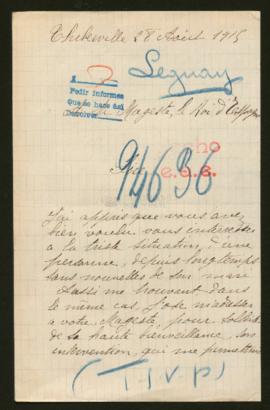 28 Août 1915
1
Pedir informes
que se hace así
Devolver
Legnay
Majesté, le Roi d'Espagne
94636
J'ai appris que vous avez
bien voulu vous intéresser
à la triste situation, d'une
personne, depuis longtemps
sans nouvelles de son mari
Aussi me trouvant dans
le même cas, j'ose m'adresser
a votre Majesté, pour
de sa haute bienveillance, son
intervention, qui me